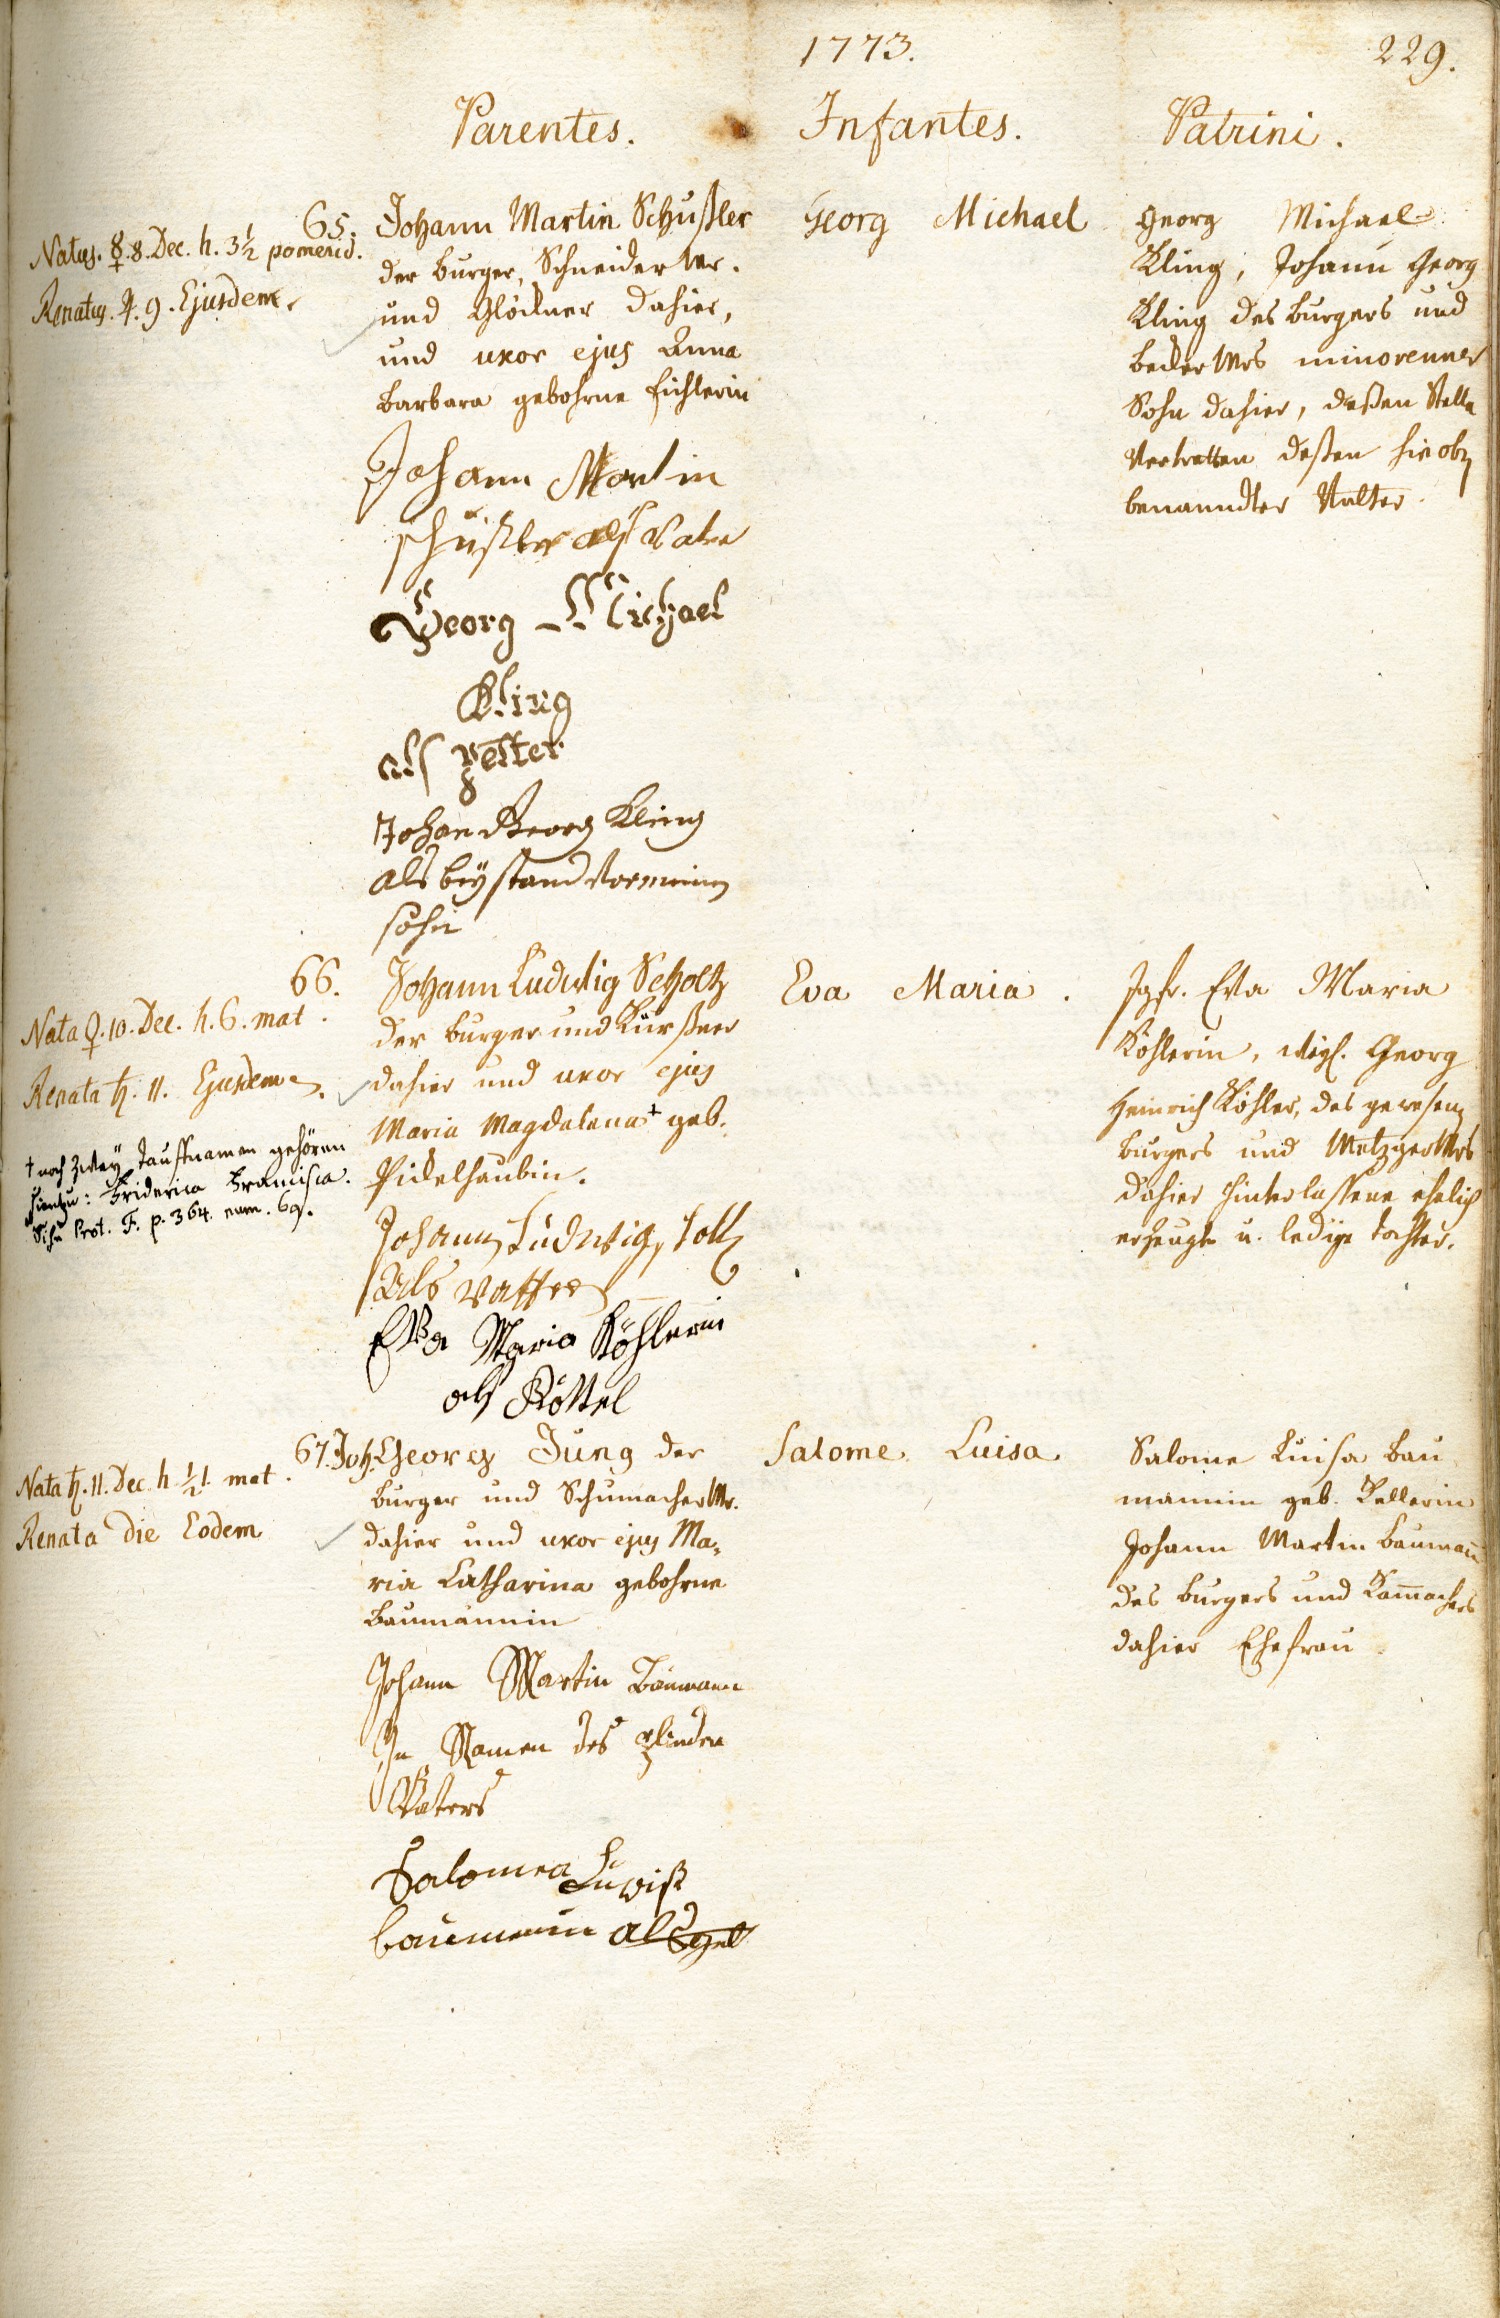 1773.
229.
Parentes.
Infantes.
Patrini.
65.
Natus. ☿. 8. Dec. h. 3 1/2 pomerid.
Renatus. ♃. 9. Ejusdem.
Johann Martin Schußler
der burger, Schneider Mr.
und Glöckner dahier,
und uxor ejus Anna
barbara gebohrne Eichlerin
Johann Martin
schüsler als Vater
Georg Michael
Kling
als Petter
Johan Georg Kling
als beÿstand vor meinen
sohn
Georg Michael
Georg Michael
Kling, Johann Georg
Kling des burgers und
becker Mrs minorenner
Sohn dahier, deßen Stelle
Vertretten deßen hieoben
benanndter Vatter.
66.
Nata ♀. 10. Dec. h. 6. mat.
Renata ♄. 11. Ejusdem.
† noch zweÿ Tauffnamen gehören
hierzu: Friderica Francisca.
Sihe Prot. F. p. 364. num. 69.
Johann Ludwig Scholtz
der burger und Kürßner
dahier und uxor ejus
Maria Magdalena † geb.
Pickelhaubin.
Johann Ludwig
Als Vatter
Eva Maria Köhlerin
als Köttel
Eva Maria.
Jgfr. Eva Maria
Köhlerin, weÿl. Georg
Heinrich Köhler, des gewesenen
burgers und Metzger Mrs
dahier hinterlassene ehelich
erzeugte u. ledige Tochter.
67.
Nata ♄. 11. Dec. h. 1/2 1. mat.
Renata die Eodem
Joh. Georg Jung der
burger und Schumacher Mr.
dahier und uxor ejus Ma-
ria Catharina gebohrne
baumännin
Johann Martin Baumann
In Namen des blinden
Vaters
Salomea Luwiss
baumenin als
Salome Luisa
Salome Luisa bau
mannin geb. Kellerin
Johann Martin baumann
des burgers und Kammachers
dahier Ehefrau.